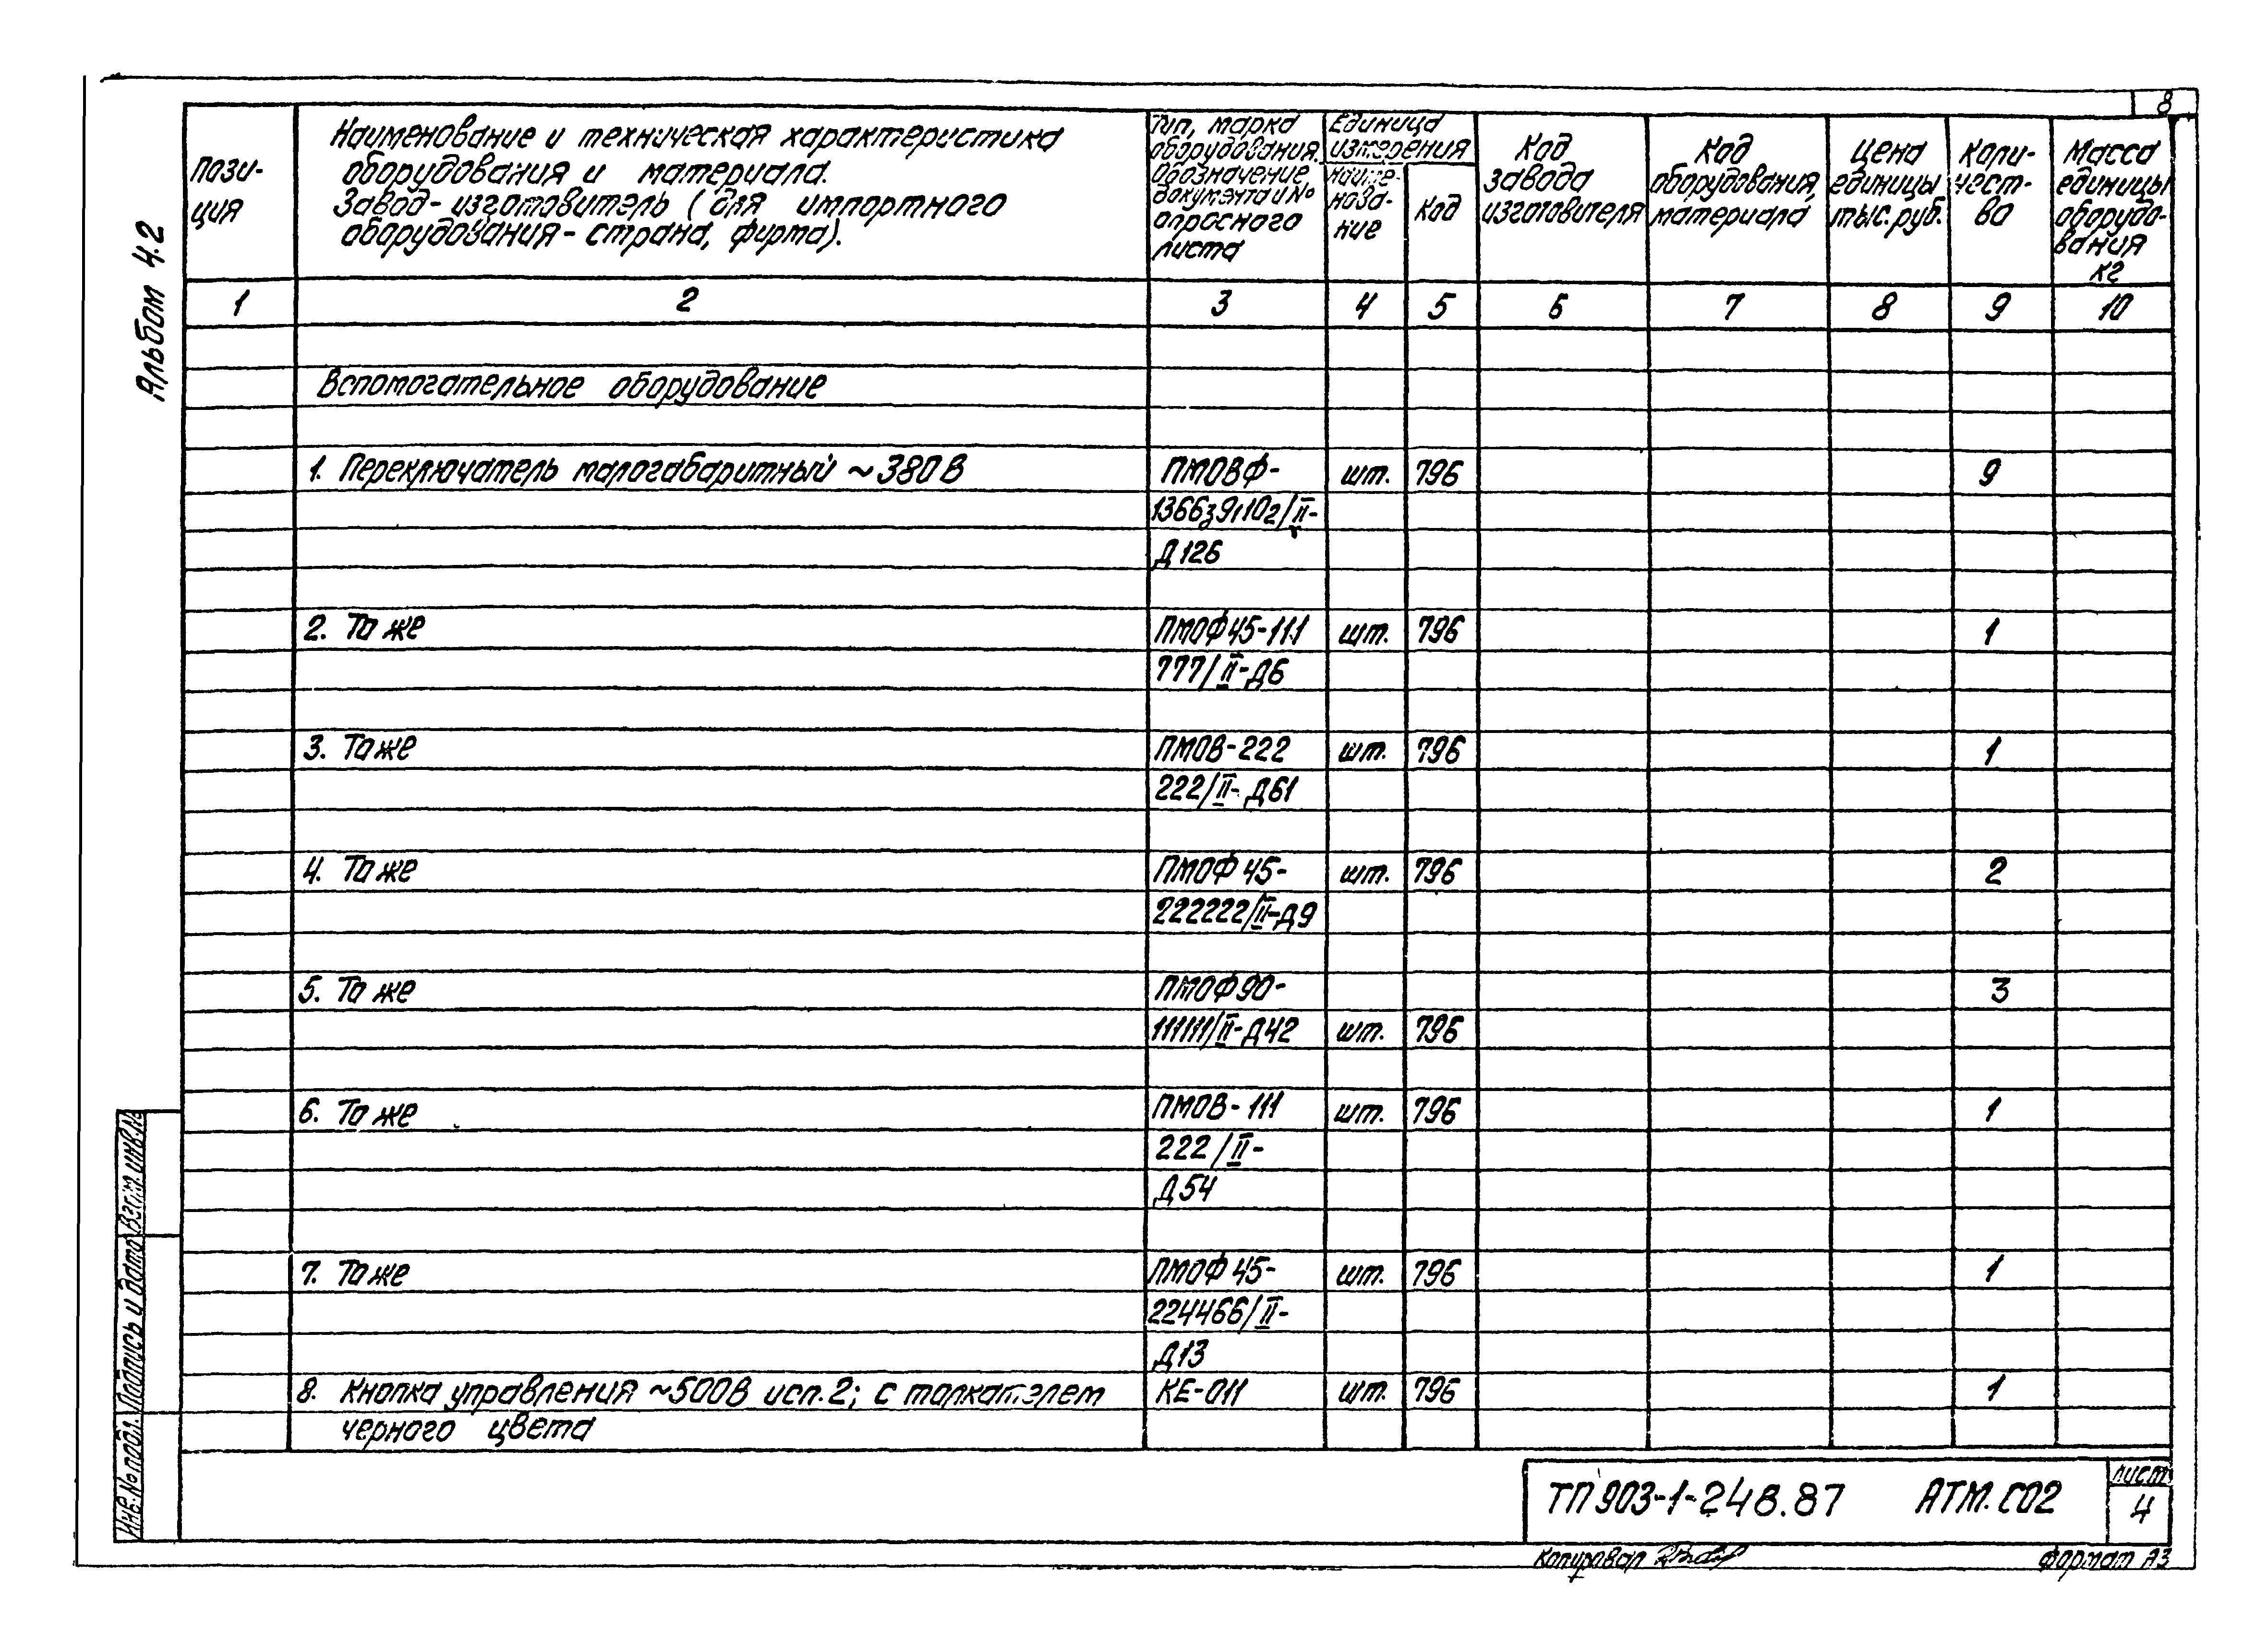 8
Альбом 4.2
Пози-
ция
Наименование и техническая характеристика
оборудования и материала.
Завод-изготовитель (для импортного
оборудования - страна, фирма).
Тип, марка
оборудования.
Обозначение
документа и №
опросного
листа
Единица
измерения
Наиме-
нова-
ние
Код
Код
завода
изготовителя
Код
оборудования,
материала
Цена
единицы
тыс. руб.
Коли-
чест-
во
Масса
единицы
оборудо-
вания
кг
1 2 3 4 5 6 7 8 9 10
Вспомогательное оборудование
1. Переключатель малогабаритный ~380В ПМОВФ- шт. 796 9
1366з9г102/II-
Д126
2. То же ПМОФ45-111 шт. 796 1
777/II-Д6
3. То же ПМОВ-222 шт. 796 1
222/II-Д61
4. То же ПМОФ45- шт. 796 2
222222/II-Д9
5. То же ПМОФ90- 3
111111/II-Д42 шт. 796
6. То же ПМОВ-111 шт. 796 1
222/II-
Д54
7. То же ПМОФ45- шт. 796 1
224466/II-
Д13
8. Кнопка управления ~500В исп.2; с толкателем КЕ-011 шт. 796 1
черного цвета
Инв.№ подл. Подпись и дата Взам. инв.№
ТП 903-1-248.87 АТМ.СО2
Лист
4
Копировал
Формат А3